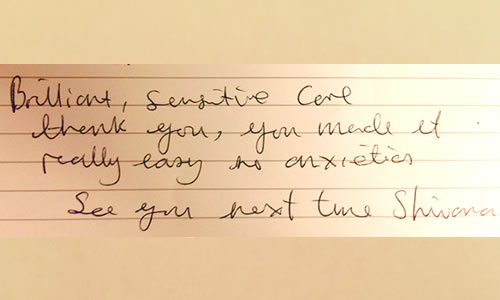 Brilliant, sensitive care
thank you, you made it
really easy no anxieties
See you next time Shivana